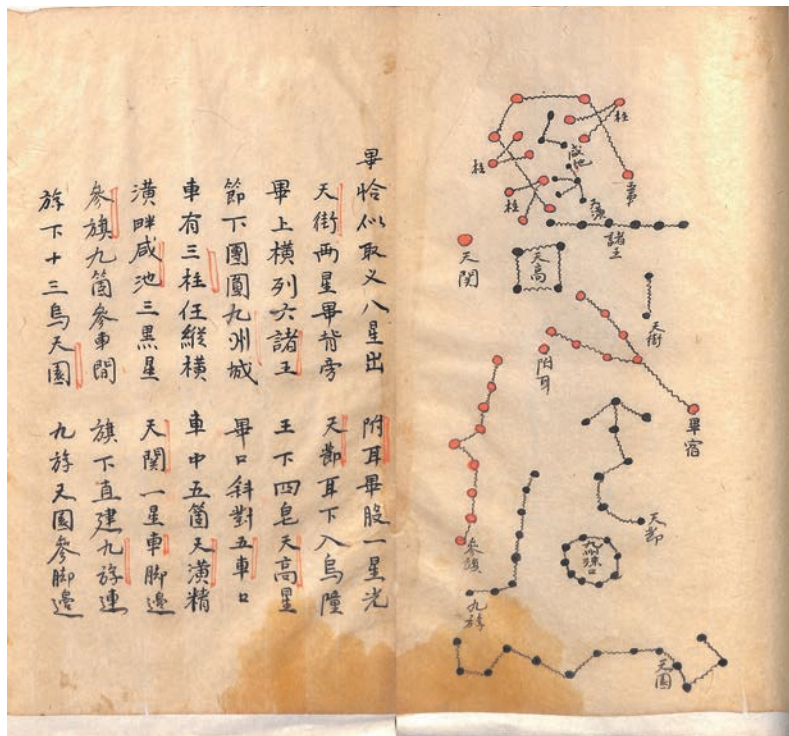 柱
咸池
柱
柱
天潢
諸王
天関
天高
天街
附耳
畢宿
天莭
參旗
九州殊口
九斿
天園
畢恰似取义八星出 附耳畢股一星光
天街兩星畢背旁 天莭耳下八烏幢
畢上橫列六諸王 王下四皂天高星
節下團圓九州城 畢口斜對五車口
車有三柱任縱橫 車中五箇天潢精
潢畔咸池三黑星 天関一星車脚邊
參旗九箇參車間 旗下直建九斿連
斿下十三烏天園 九斿天園參脚邊